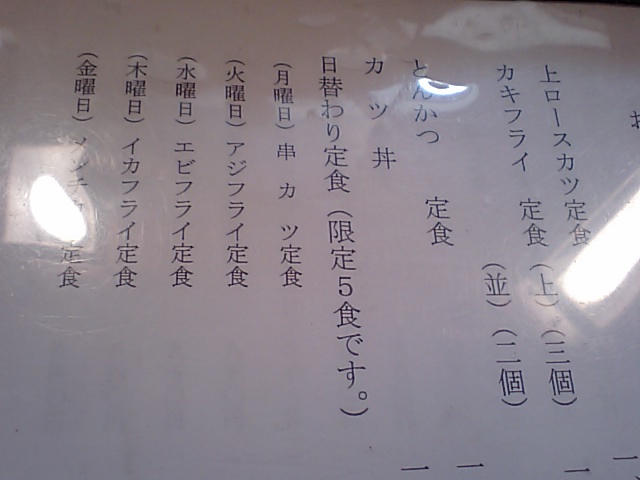 上ロースカツ定食
カキフライ 定食 （上）（三個）
（並）（二個）
とんかつ 定食
カツ丼
日替わり定食（限定５食です。）
（月曜日）串カツ定食
（火曜日）アジフライ定食
（水曜日）エビフライ定食
（木曜日）イカフライ定食
（金曜日）メンチ 定食